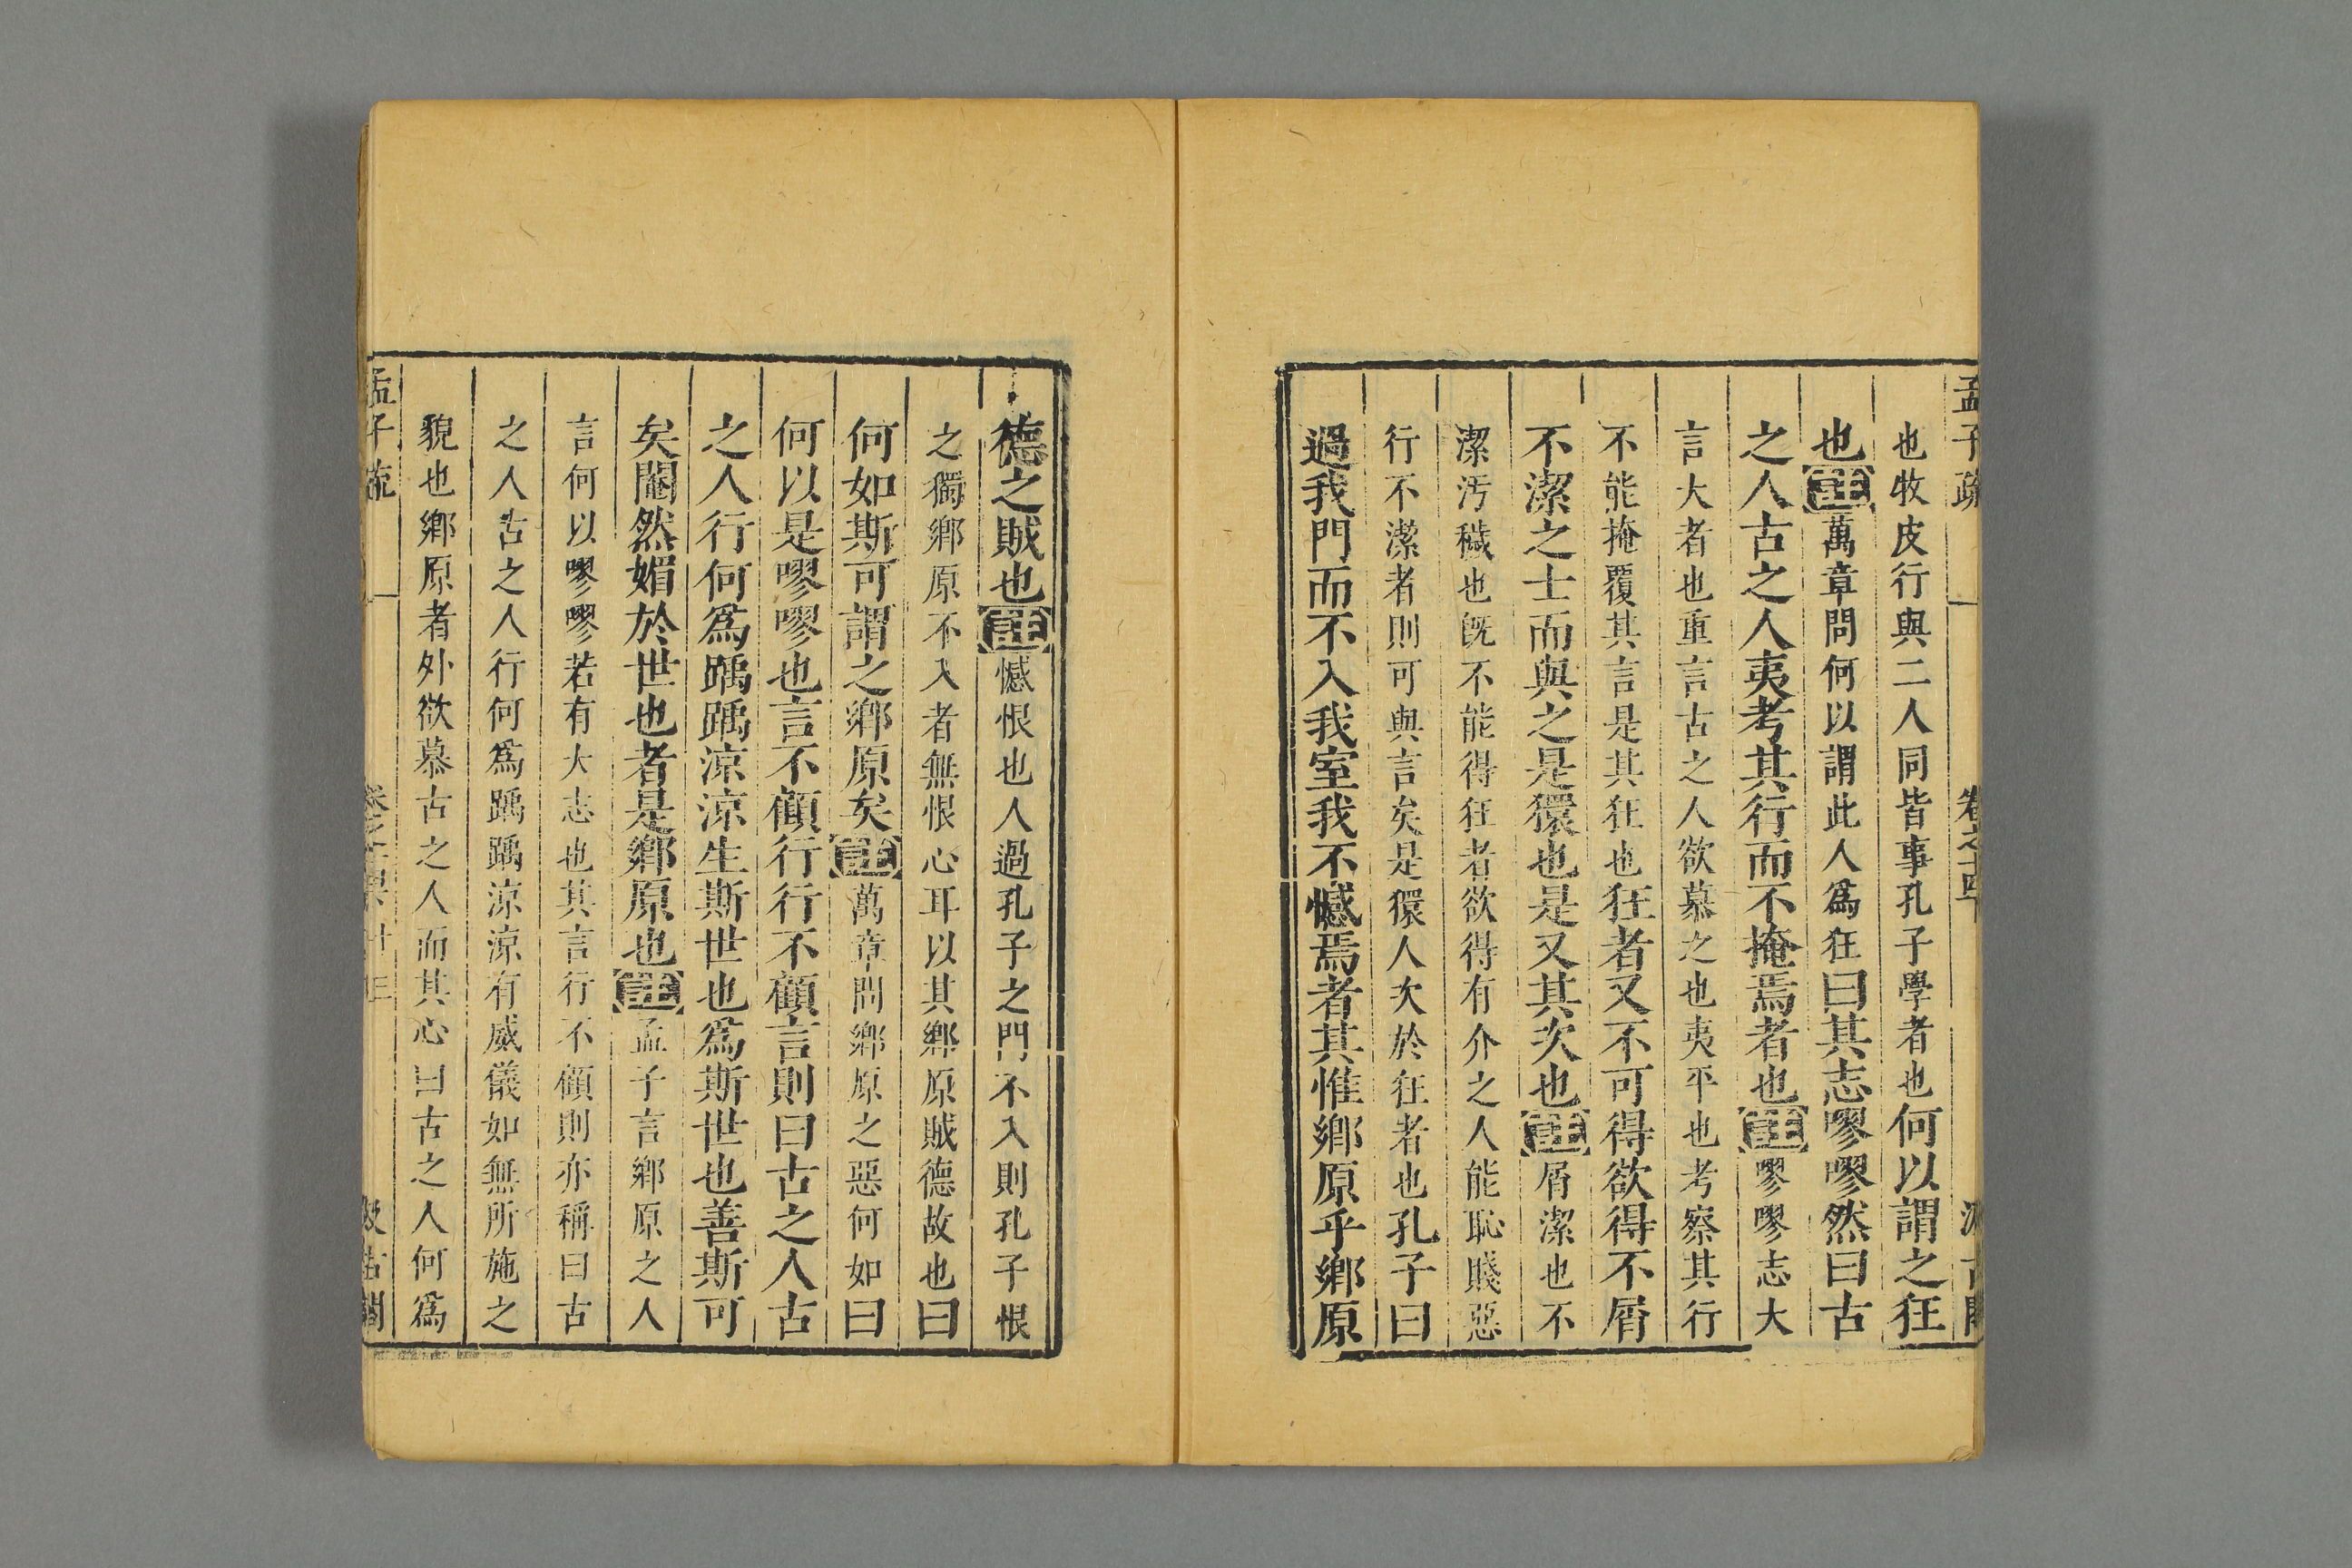 孟子疏
卷之十四下
也牧皮行與二人同皆事孔子學者也何以謂之狂
也註萬章問何以謂此人爲狂曰其志嘐嘐然曰古
之人古之人夷考其行而不掩焉者也註嘐嘐志大
言大者也重言古之人欲慕之也夷平也考察其行
不能掩覆其言是其狂也狂者又不可得欲得不屑
不潔之士而與之是獧也是又其次也註屑潔也不
潔汚穢也旣不能得狂者欲得有介之人能恥賤惡
行不潔者則可與言矣是獧人次於狂者也孔子曰
過我門而不入我室我不憾焉者其惟鄉原乎鄉原
德之賊也註憾恨也人過孔子之門不入則孔子恨
之獨鄉原不入者無恨心耳以其鄉原賊德故也曰
何如斯可謂之鄉原矣註萬章問鄉原之惡何如曰
何以是嘐嘐也言不顧行行不顧言則曰古之人古
之人行何爲踽踽涼涼生斯世也爲斯世也善斯可
矣閹然媚於世也者是鄉原也註孟子言鄉原之人
言何以嘐嘐若有大志也其言行不顧則亦稱曰古
之人古之人行何爲踽踽涼涼有威儀如無所施之
貌也鄉原者外欲慕古之人而其心曰古之人何爲
孟子疏